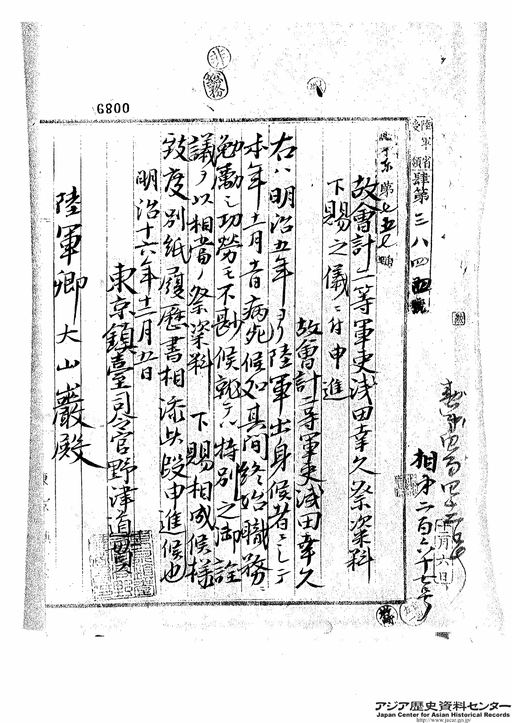 0089
陸軍省
受領
肆第三八四四號
第七五七
故會計二等軍吏浅田幸久祭粢料
下賜之儀ニ付申進
故會計二等軍吏浅田幸久
右ハ明治五年ヨリ陸軍出身候者ニシテ
本年十一月 病死候処其間終始職務
勉勵之功勞モ不尠候就テハ特別之御詮
議ヲ以相當ノ祭粢料 下賜相成候様
致度別紙履歴書相添此段申進候也
明治十六年十二月五日
東京鎮臺司令官野津道貫
陸軍卿大山巖殿
總務
月六日
アジア歴史資料センター
Japan Center for Asian Historical Records
http://www.jacar.go.jp/